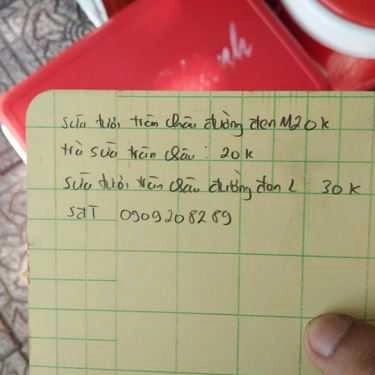 sữa tươi trân châu đường đen M 20k
trà sữa trân châu : 20k
sữa tươi trân châu đường đen L 30k
SĐT 0909208289